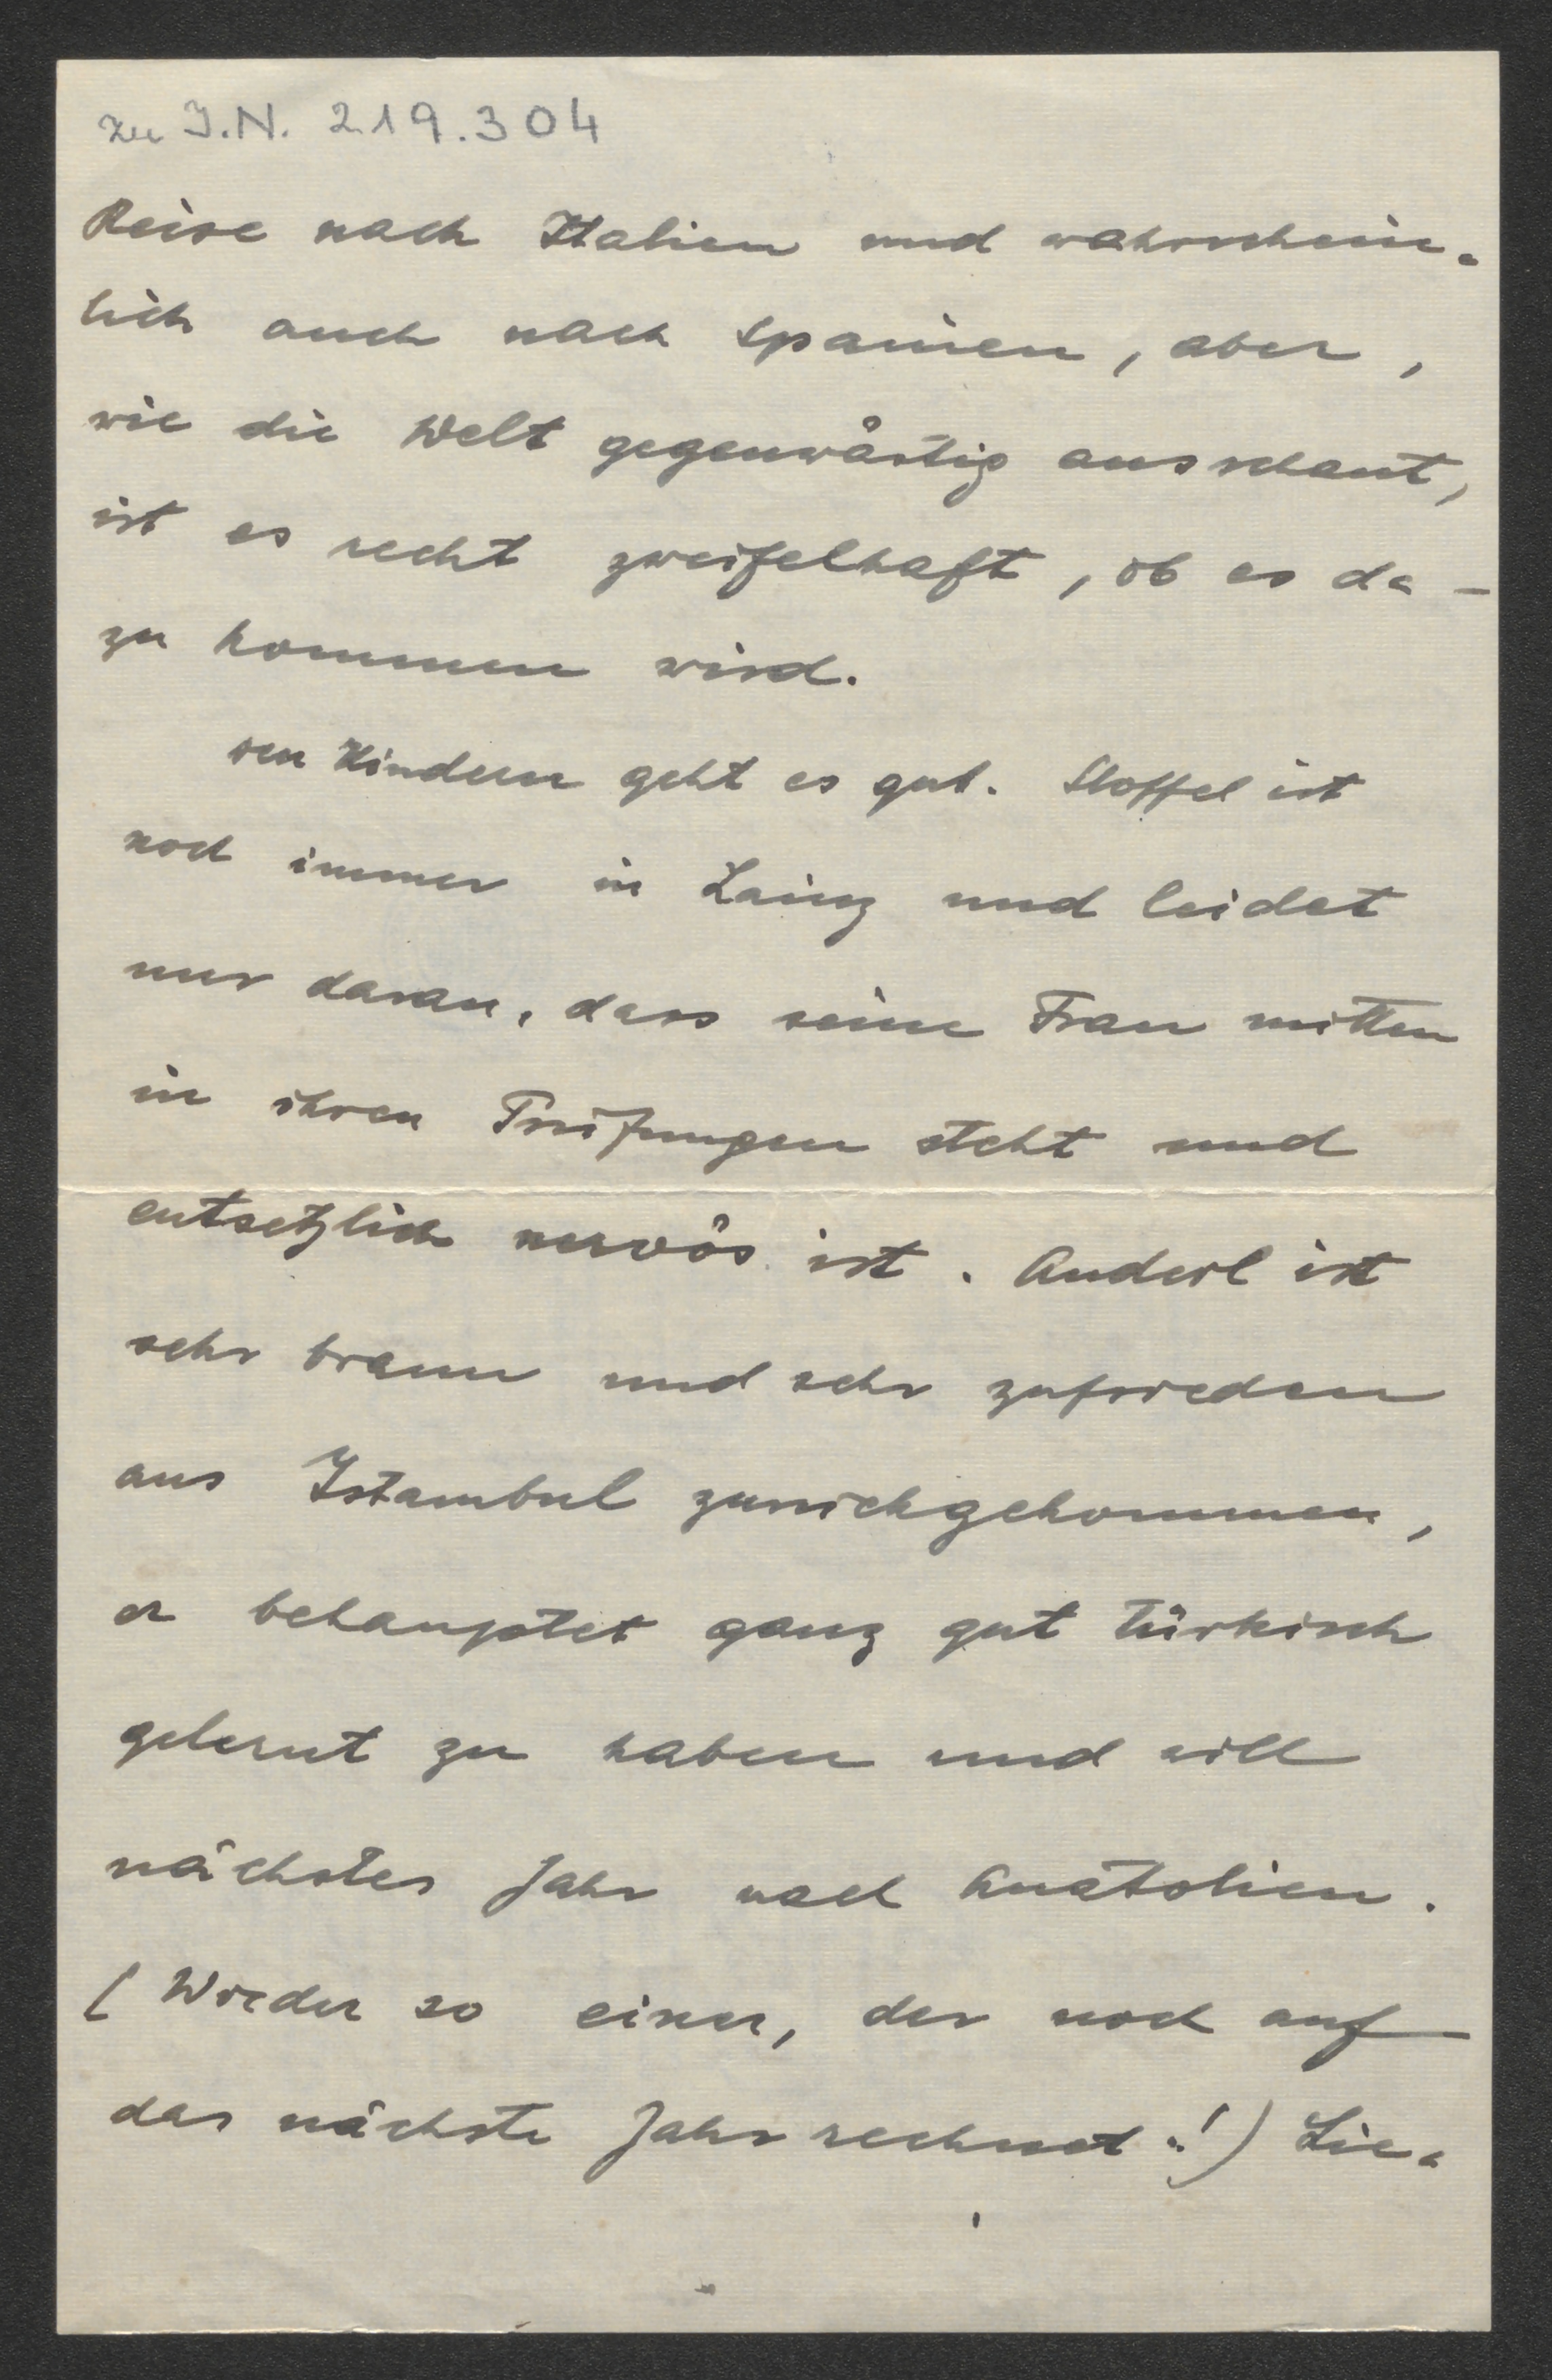 zu I.N. 219.304
Reise nach Italien und wahrschein-
lich auch nach Spanien, aber,
wie die Welt gegenwärtig ausschaut,
ist es recht zweifelhaft, ob es da-
zu kommen wird.
Den Kindern geht es gut. Stoffel ist
noch immer in Lainz und leidet
nur daran, dass seine Frau mitten
in ihren Prüfungen steht und
entsetzlich nervös ist. Anderl ist
sehr braun und sehr zufrieden
aus Istambul zurückgekommen,
er behauptet ganz gut türkisch
gelernt zu haben und will
nächstes Jahr nach Anatolien.
(Wieder so einer, der noch auf
das nächste Jahr rechnet!) Lie-